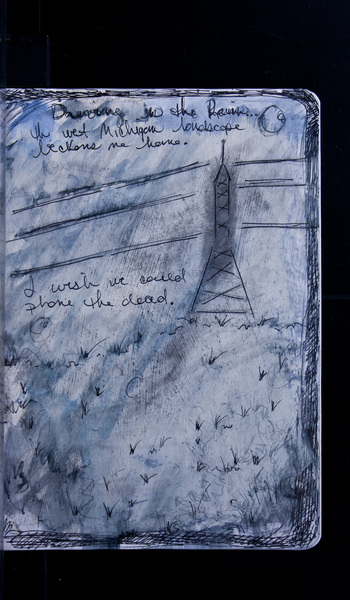 Driving in the Rain...
The wet Michigan landscape
beckons me home.
I wish we could
phone the dead.